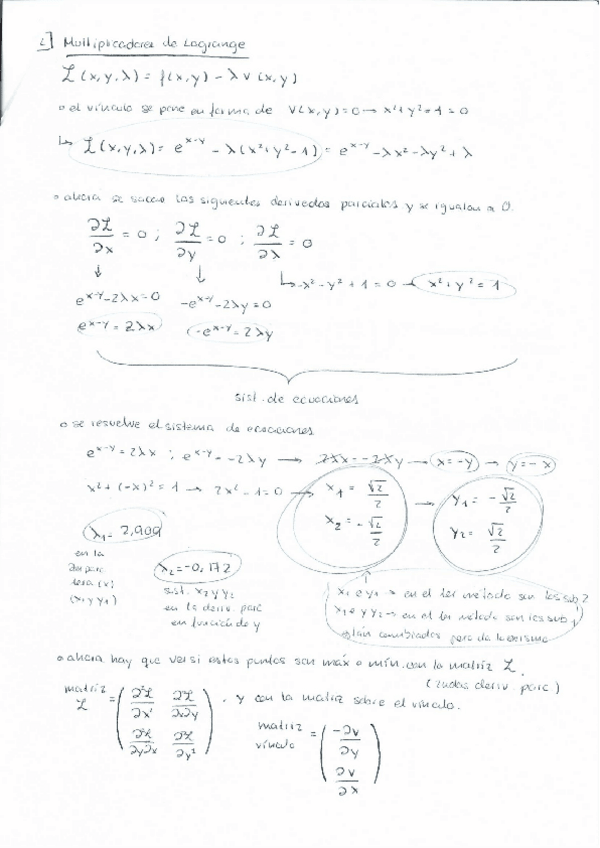 2] Multiplicadores de Lagrange
L(x,y,λ) = f(x,y) - λ v(x,y)
∘ el vínculo se pone en forma de v(x,y)=0 → x²+y²-1=0
↳ L(x,y,λ) = e^(x-y) - λ(x²+y²-1) = e^(x-y) - λx² - λy² + λ
∘ ahora se sacan las siguientes derivadas parciales y se igualan a 0.
∂L/∂x = 0 ; ∂L/∂y = 0 ; ∂L/∂λ = 0
↓ ↓ ↳ -x² - y² + 1 = 0 → x² + y² = 1
e^(x-y) - 2λx = 0 -e^(x-y) - 2λy = 0
e^(x-y) = 2λx -e^(x-y) = 2λy
sist. de ecuaciones
∘ se resuelve el sistema de ecuaciones
e^(x-y) = 2λx ; e^(x-y) = -2λy → 2λx = -2λy → x = -y → y = -x
x² + (-x)² = 1 → 2x² - 1 = 0 → x₁ = √2/2 → y₁ = -√2/2
x₂ = -√2/2 y₂ = √2/2
λ₁ = 2,909
en la
(x)
(x₁ y y₁)
λ₂ = -0,172
sist. x₂ y y₂
en la deriv parc
en función de y
x₁ e y₁ → en el 1er método son las sub 2
x₂ e y₂ → en el 1er método son las sub 1
están cambiados pero da lo mismo
∘ ahora hay que ver si estos puntos son máx o mín. con la matriz L.
(2udas deriv parc)
matriz L = (∂²L/∂x² ∂²L/∂x∂y
∂²L/∂y∂x ∂²L/∂y²) . y con la matriz sobre el vínculo.
matriz vínculo = (-∂v/∂y
∂v/∂x)